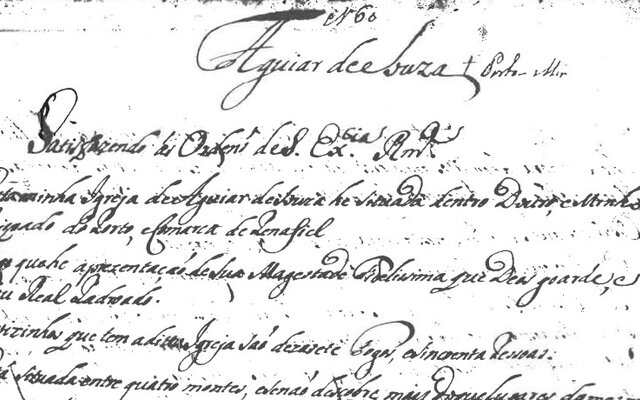 N 60
Aguiar de Souza † Porto - Mir
Satisfazendo ás Ordens de S. Exᶜⁱᵃˢ Rmᵃˢ
minha Igreja de Aguiar de Souza he situada dentro Douro, e Minho
do Porto, e Comarca de Penafiel
que he aprezentaçaó de Sua Magestade Fidelissima que Deos goarde, e
Real Padroádo.
que tem a ditta Igreja saó dezasete Fogos, e sincoenta Pessoas.
situada entre quatro montes, e senaó descobre mais do que lugares da